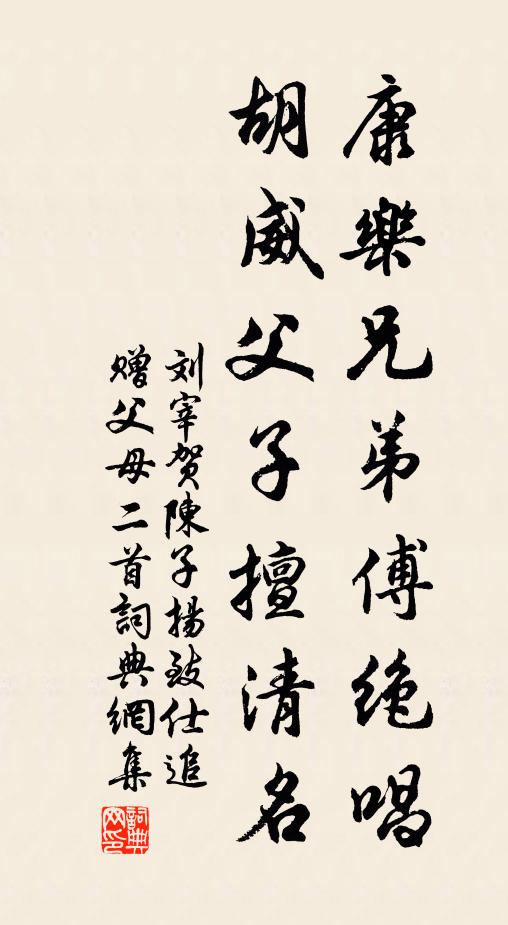 康樂兄弟傅绝唱
胡威父子擅清名
刘宰贺陳子揚致仕追
赠父母二首詞典網集
詞典
网印